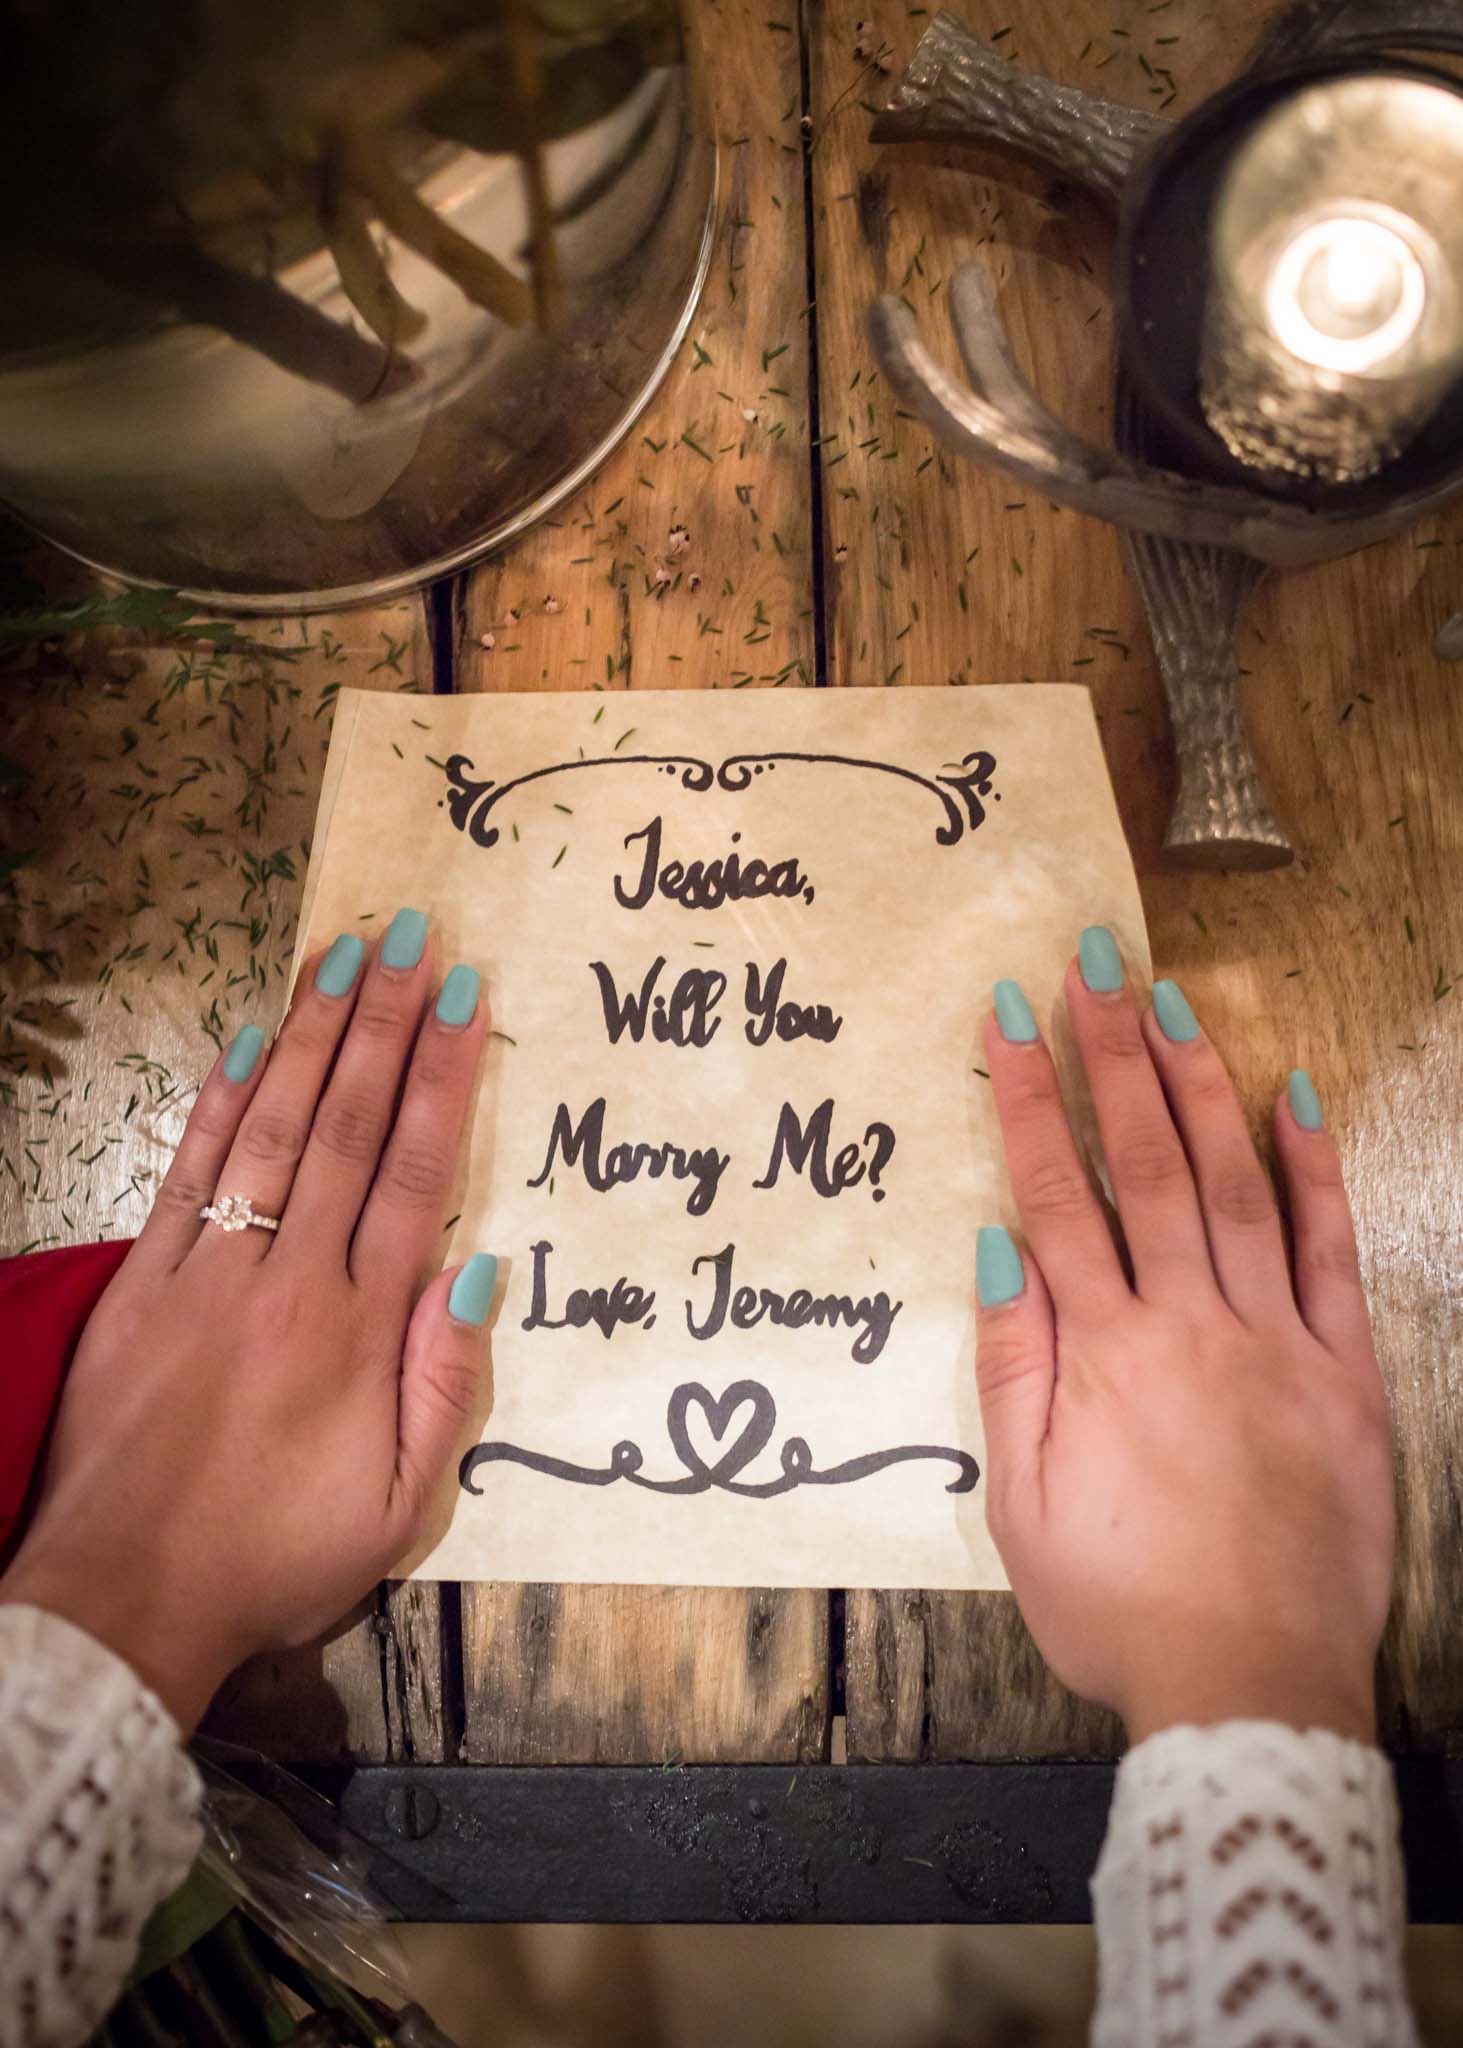 Jessica,
Will You
Marry Me?
Love, Jeremy